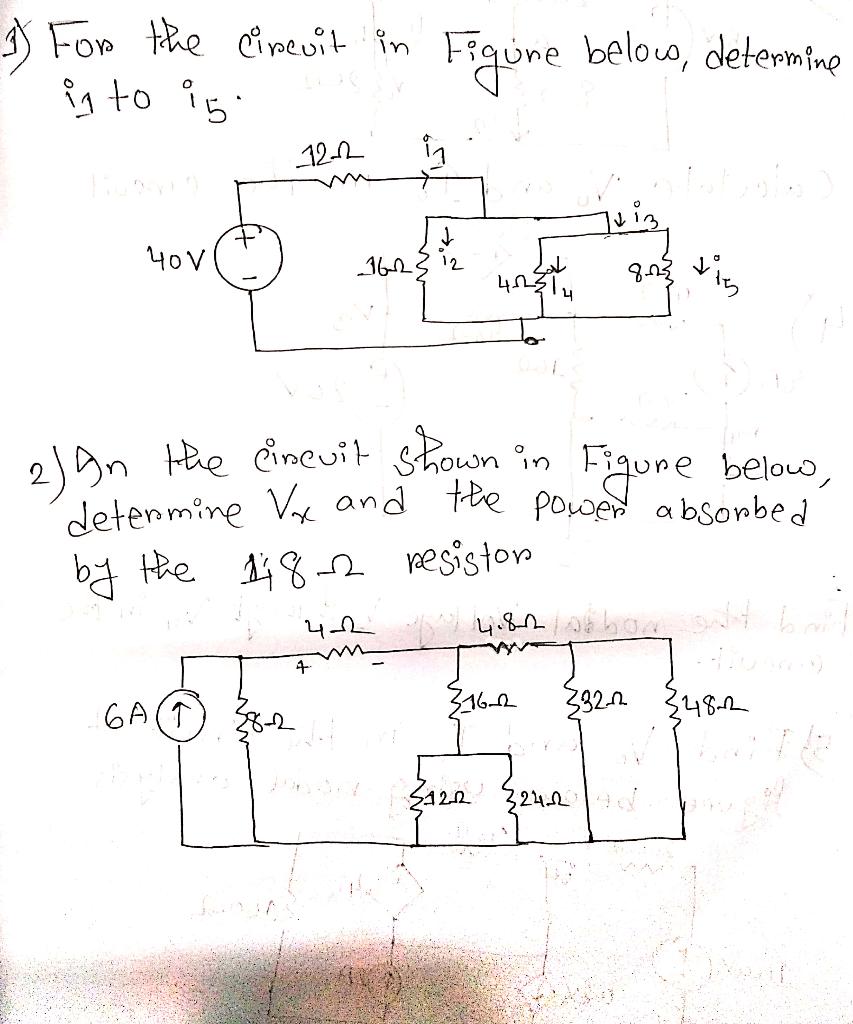 1) For the circuit in Figure below, determine
i1 to i5.
12Ω i1
40V + - 16Ω i2 4Ω i4 i3 8Ω i5
2) In the circuit shown in Figure below,
determine Vx and the power absorbed
by the 48Ω resistor
4Ω 4.8Ω
+ -
6A 8Ω 16Ω 32Ω 48Ω
12Ω 24Ω